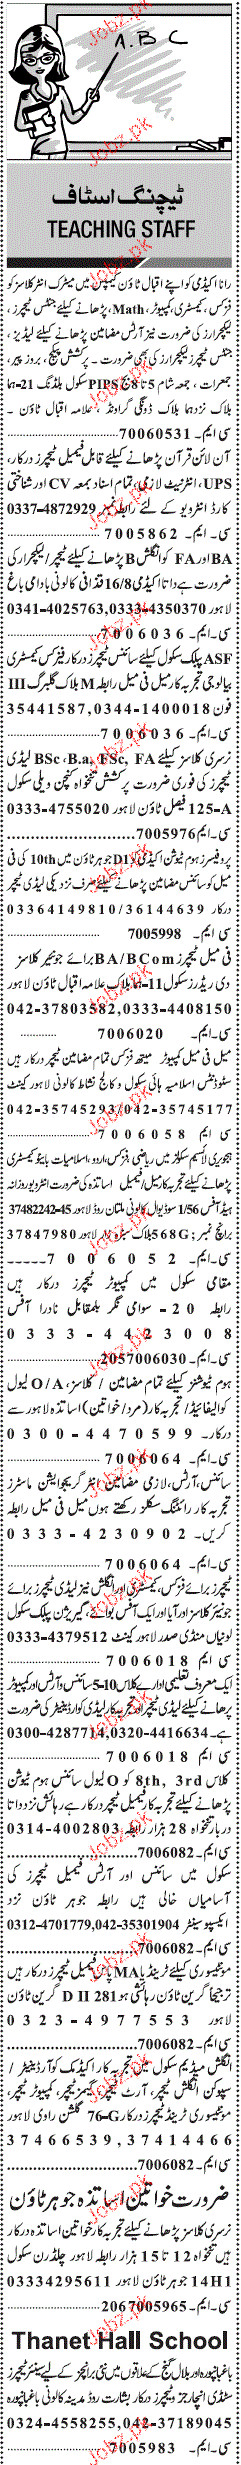 A.BC
ٹیچنگ اسٹاف
TEACHING STAFF
رانا اکیڈمی کو اپنے اقبال ٹاؤن کیمپس میں میٹرک انٹر کلاسز کو
فزکس، کیمسٹری، کمپیوٹر، Math، پڑھانے کیلئے جینٹس ٹیچرز،
لیکچرارز کی ضرورت نیز آرٹس مضامین پڑھانے کیلئے لیڈیز،
جینٹس ٹیچرز لیکچرارز کی بھی ضرورت۔ پرکشش پیکج، بروز پیر،
جمعرات، جمعہ شام 5 تا 8 بجے PIPS سکول بلڈنگ 21-ہما
بلاک نزد ہما بلاک ڈونگی گراؤنڈ، علامہ اقبال ٹاؤن۔
سی ایم۔ 70060531
آن لائن قرآن پڑھانے کیلئے قابل فیمیل ٹیچرز درکار،
UPS، انٹرنیٹ لازمی، تمام اسناد بمعہ CV اور شناختی
کارڈ انٹرویو کے لئے رابطہ نمبر 0337-4872929
سی۔ ایم۔ 7005862
BA اور FA کو انگلش B پڑھانے کیلئے ٹیچر/لیکچرار کی
ضرورت ہے داتا اکیڈمی 16/8 قذافی کالونی بادامی باغ
لاہور 0341-4025763,0333-4350370
سی۔ ایم۔ 7006036
ASF پبلک سکول کیلئے سائنس ٹیچرز درکار فزکس کیمسٹری
بیالوجی تجربہ کار میل فی میل رابطہ M بلاک گلبرگ III
فون 35441587,0344-1400018
سی۔ ایم۔ 7006036
نرسری کلاسز کیلئے BSc ،B.a، FSc, FA لیڈی
ٹیچرز کی فوری ضرورت پرکشش تنخواہ کنچن ویلی سکول
125-A فیصل ٹاؤن لاہور 0333-4755020
سی۔ ایم 7005976
پروفیسرز ہوم ٹیوشن اکیڈمی کو D1 جوہر ٹاؤن میں 10th کی فی
میل کو سائنس مضامین پڑھانے کیلئے صرف نزدیکی لیڈی ٹیچر
درکار 03364149810/36144639
سی۔ ایم۔ 7005998
فی میل ٹیچرز BA/BCom برائے جونیئر کلاسز
دی ریڈرز سکول 11-ہما بلاک علامہ اقبال ٹاؤن لاہور
042-37803582,0333-4408150
سی۔ ایم۔ 7006020
میل فی میل کمپیوٹر میتھ فزکس تمام مضامین ٹیچر درکار ہیں
سٹوڈنٹس اسلامیہ ہائی سکول و کالج نشاط کالونی لاہور کینٹ
042-35745293/042-35745177
سی ایم 7006058
ہجویری لائسیم سکولز میں ریاضی، فزکس، اردو، اسلامیات، بائیو کیمسٹری
پڑھانے کیلئے تجربہ کار میل/فیمیل اساتذہ کی ضرورت انٹرویو روزانہ
ہیڈ آفس 1/56 سوڈیوال کالونی ملتان روڈ لاہور 37482242-45
برانچ نمبر: 568G بلاک سبزہ زار لاہور 37847980
سی۔ ایم۔ 7006052
مقامی سکول میں کمپیوٹر ٹیچرز درکار ہیں
رابطہ 20- سوامی نگر بلمقابل نادرا آفس
0333-4423008
سی۔ ایم۔ 2057006030
ہوم ٹیوشنز کیلئے تمام مضامین / کلاسز، O/A لیول
کوالیفائیڈ/ تجربہ کار (مرد/خواتین) اساتذہ لاہور سے
درکار۔ 0300-4470599
سی۔ ایم۔ 7006064
سائنس، آرٹس، لازمی مضامین انٹر گریجوایشن ماسٹرز
تجربہ کار رائٹنگ سکلز رکھتے ہوں میل فی میل رابطہ
کریں۔ 0333-4230902
سی۔ ایم۔ 7006064
ٹیچرز برائے فزکس، کیمسٹری اور انگلش نیز لیڈی ٹیچرز برائے
جونیئر کلاسز اور آیا اور ایک آفس بوائے، کیریژن پبلک سکول
لونیاں منڈی صدر لاہور کینٹ 0333-4379512
سی ایم 7006018
ایک معروف تعلیمی ادارے کلاس 5-10 سائنس و آرٹس اور کمپیوٹر
پڑھانے کیلئے لیڈی ٹیچرز اور تجربہ کار لیڈی کوارڈینیٹر کی ضرورت
ہے۔ 0300-4287714,0320-4416634
سی ایم 7006018
کلاس 8th, 3rd کو O لیول سائنس ہوم ٹیوشن
پڑھانے کیلئے تجربہ کار فیمیل ٹیچر درکار ہے رہائش نزد داتا
دربار تنخواہ 28 ہزار رابطہ 0314-4002803
سی ایم۔ 7006082
سکول میں سائنس اور آرٹس فیمیل ٹیچرز کی
آسامیاں خالی ہیں رابطہ جوہر ٹاؤن نزد
ایکسپو سینٹر 0312-4701779,042-35301904
سی ایم۔ 7006082
مونٹیسوری کیلئے ٹرینڈ یا MA پاس فیمیل ٹیچرز درکار ہیں
ترجیحاً گرین ٹاؤن رہائشی ہو 281 D II گرین ٹاؤن
لاہور 0323-4977553
سی ایم۔ 7006082
انگلش میڈیم سکول میں تجربہ کار اکیڈمک کوآرڈینیٹر /
سپوکن انگلش ٹیچر، آرٹ ٹیچر، گیمز ٹیچر، کمپیوٹر ٹیچر،
مونٹیسوری ٹرینڈ ٹیچرز درکار 76-G گلشن راوی لاہور
37466539,37414466
سی ایم۔ 7006082
ضرورت خواتین اساتذہ جوہر ٹاؤن
نرسری کلاسز پڑھانے کیلئے تجربہ کار خواتین اساتذہ درکار
ہیں تنخواہ 12 تا 15 ہزار رابطہ لاہور چلڈرن سکول
14H1 جوہر ٹاؤن لاہور 03334295611
سی۔ ایم۔ 2067005965
Thanet Hall School
باغبانپورہ اور بلال گنج کے علاقوں میں نئی برانچز کے لیے سینئر ٹیچرز
سٹڈی انچارجز و ٹیچرز درکار بشارت روڈ مدینہ کالونی باغبانپورہ
0324-4558255,042-37189045
سی۔ ایم 7005983